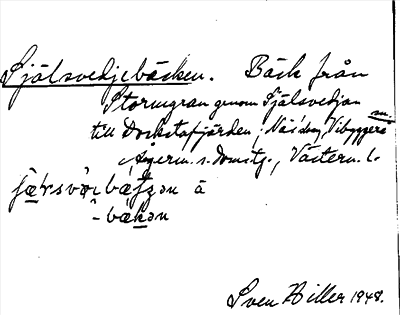 Själsvedjebäcken. Bäck från
Storungran genom Själsvedjan
till Dockstafjärden; Näs'dom, Vibyggerå
m.
Ångerm. s. domstg., Västern. l.
bäkən
Sven Hiller 1948.